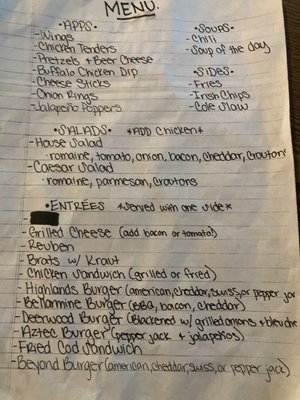 MENU
•APPS•
-Wings
-Chicken Tenders
-Pretzels + Beer Cheese
-Buffalo Chicken Dip
-Cheese Sticks
-Onion Rings
-Jalapeño Poppers
•SOUPS•
-Chili
-Soup of the day
•SIDES•
-Fries
-Irish Chips
-Cole Slaw
•SALADS• *ADD Chicken*
-House Salad
-romaine, tomato, onion, bacon, cheddar, croutons
-Caesar Salad
-romaine, parmesan, croutons
•ENTRÉES *served with one side*
-Grilled Cheese (add bacon or tomato!)
-Reuben
-Brats w/ Kraut
-Chicken Sandwich (grilled or fried)
-Highlands Burger (american, cheddar, swiss, or pepper jack
-Bellarmine Burger (BBQ, bacon, cheddar)
-Deerwood Burger (Blackened w/ grilled onions + bleu chee
-Aztec Burger (pepper jack + jalapeños)
-Fried Cod Sandwich
-Beyond Burger (american, cheddar, swiss, or pepper jack)